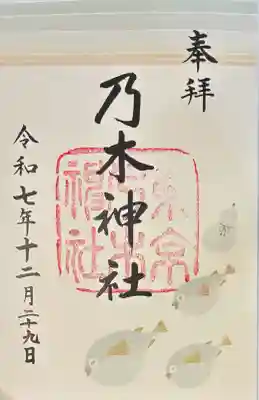 奉拝
乃木神社
東京乃木神社
令和七年十二月二十九日